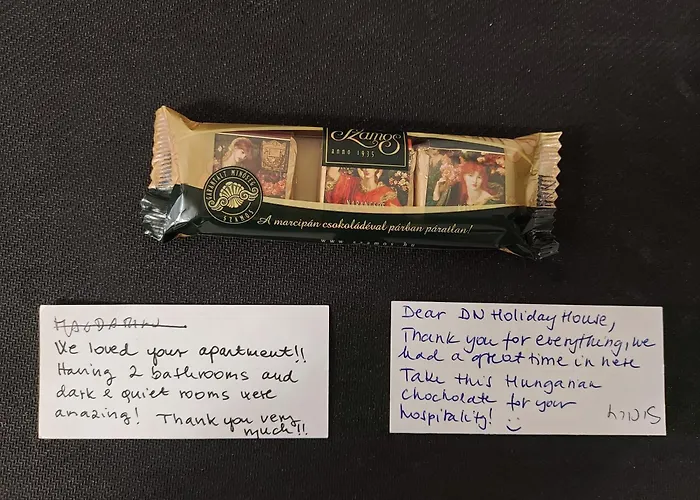 Szamos
anno 1935
GARANTÁLT MINŐSÉG
SZAMOS
A marcipán csokoládéval párban páratlan!
www.szamos.hu
We loved your apartment!!
Having 2 bathrooms and
dark & quiet rooms were
amazing! Thank you very
much!!
Dear DN Holiday House,
Thank you for everything, we
had a great time in here
Take this Hungarian
chocholate for your
hospitality! :)